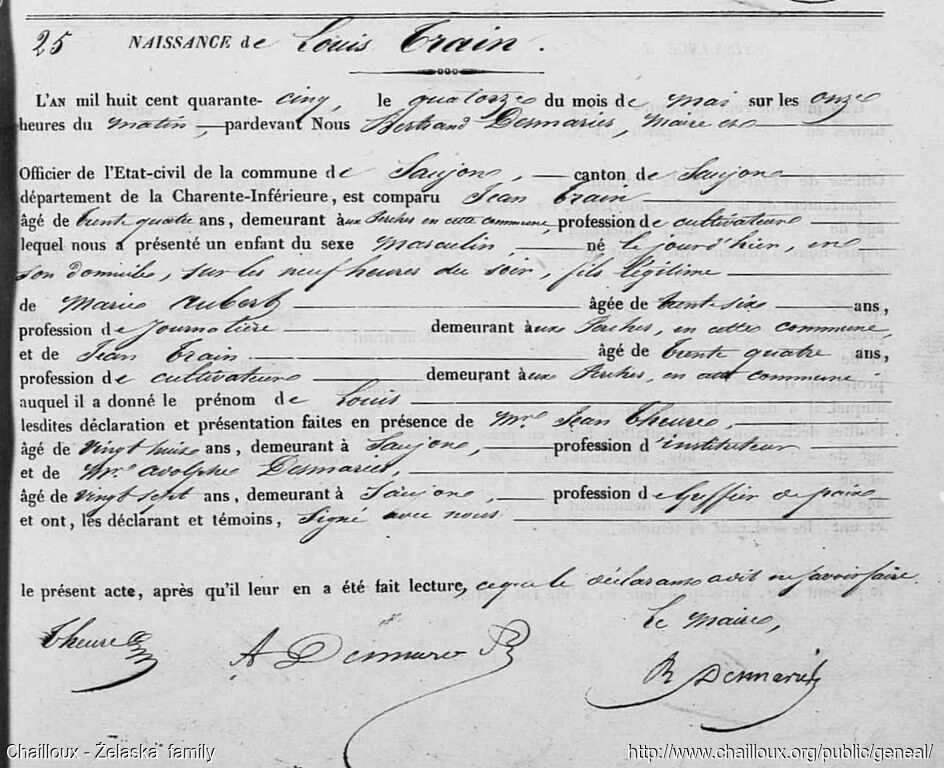 25 NAISSANCE de Louis Train.
L'AN mil huit cent quarante-cinq, le quatorze du mois de mai sur les onze
heures du matin, pardevant Nous Bertrand Desmaries, Maire et
Officier de l'Etat-civil de la commune de Saujon, canton de Saujon
département de la Charente-Inférieure, est comparu Jean Train
âgé de trente quatre ans, demeurant aux Perches en cette commune profession de cultivateur
lequel nous a présenté un enfant du sexe Masculin né le jour d'hier, en
son domicile, sur les neuf heures du soir, fils légitime
de Marie Aubert âgée de trente six ans,
profession de Journalière demeurant aux Perches, en cette commune
et de Jean Train âgé de trente quatre ans,
profession de cultivateur demeurant aux Perches, en cette commune
auquel il a donné le prénom de Louis
lesdites déclaration et présentation faites en présence de Mr. Jean Theure,
âgé de vingt huit ans, demeurant à Saujon, profession d'instituteur
et de Mr. adolphe Desmaries,
âgé de vingt sept ans, demeurant à Saujon, profession de Greffier de paix
et ont, les déclarant et témoins, signé avec nous
le présent acte, après qu'il leur en a été fait lecture, ce que le déclarant a dit ne savoir faire.
Le Maire,
Theure A Desmaries B Desmaries
Chailloux - Żelaska family http://www.chailloux.org/public/geneal/